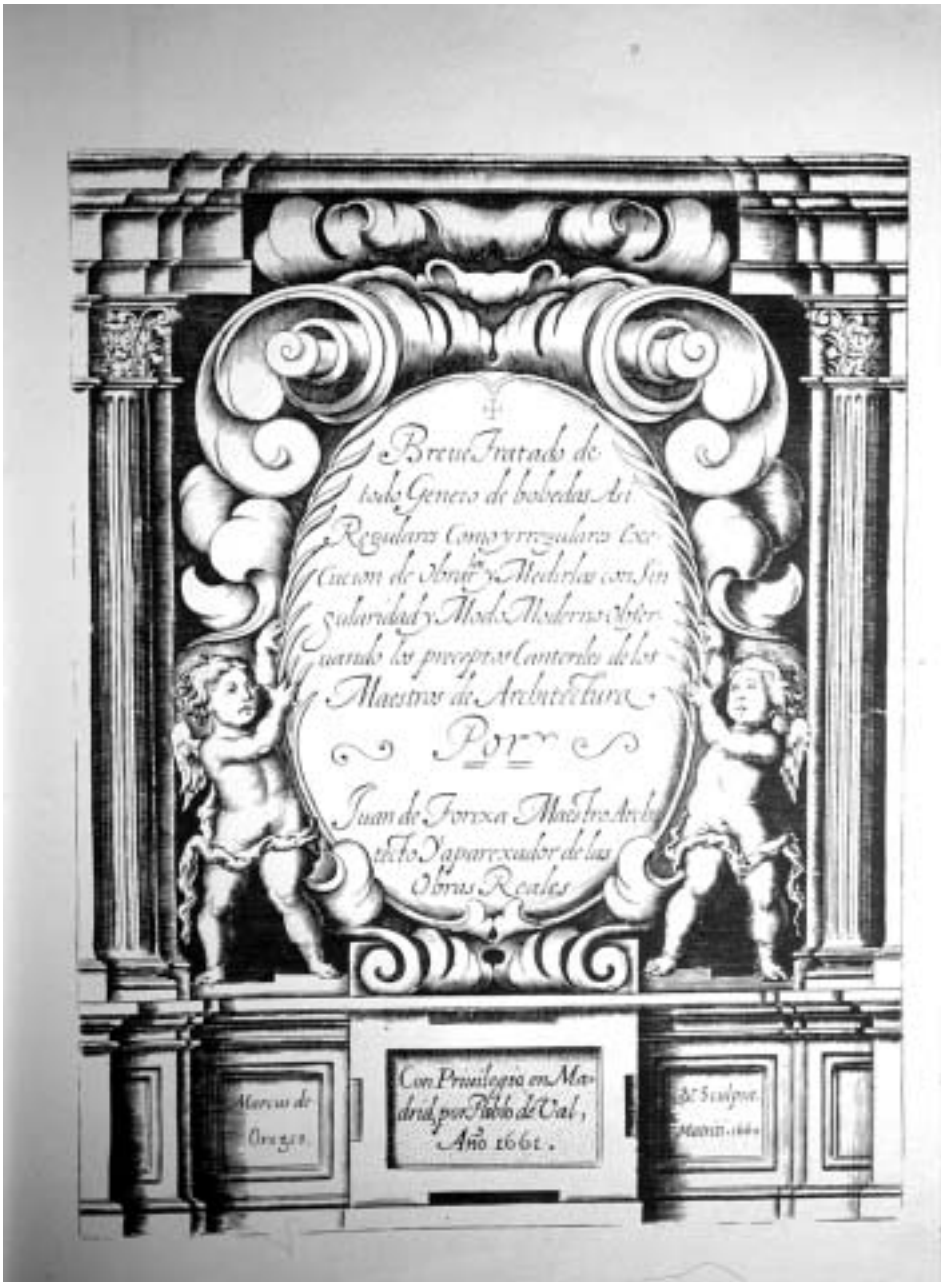 Breue Tratado de
todo Genero de bobedas Asi
Regulares Como yrregulares Exe-
cucion de obrarlas y Medirlas con Sin
gularidad y Modo Moderno obser-
uando los preceptos Canteriles de los
Maestros de Architectura
Por
Juan de Torixa Maestro Archi
tecto Y aparexador de las
Obras Reales
Con Priuilegio en Ma-
drid, por Pablo de Val,
Año 1661.
Marcus de
Orozco.
Sculpsit.
Matriti. 1660